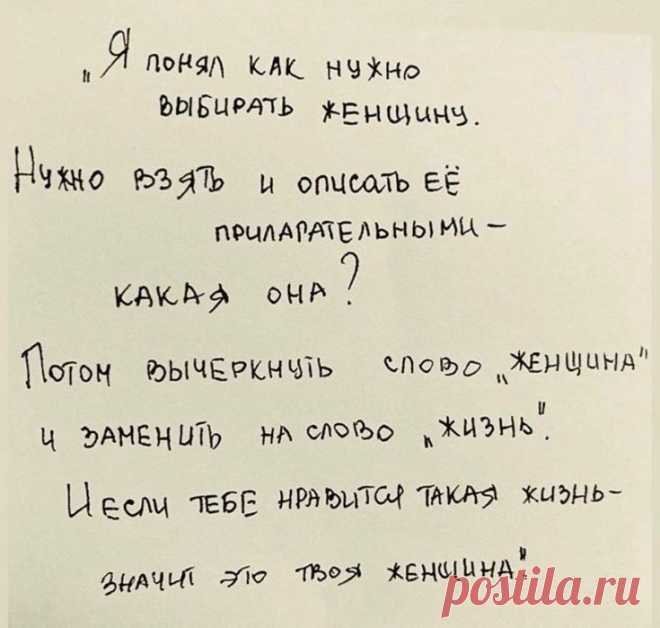 „Я понял как нужно
выбирать женщину.
Нужно взять и описать её
приларательными –
какая она?
Потом вычеркнуть слово „женщина"
и заменить на слово „жизнь".
И если тебе нравится такая жизнь –
значит это твоя женщина"
postila.ru